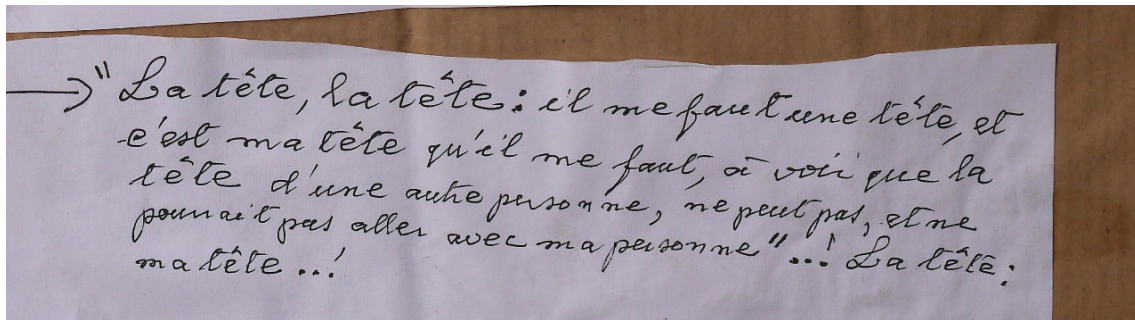 →" La tête, la tête : il me faut une tête, et
c'est ma tête qu'il me faut, à voir que la
tête d'une autre personne, ne peut pas, et ne
pourrait pas aller avec ma personne"...! La tête :
ma tête ...!